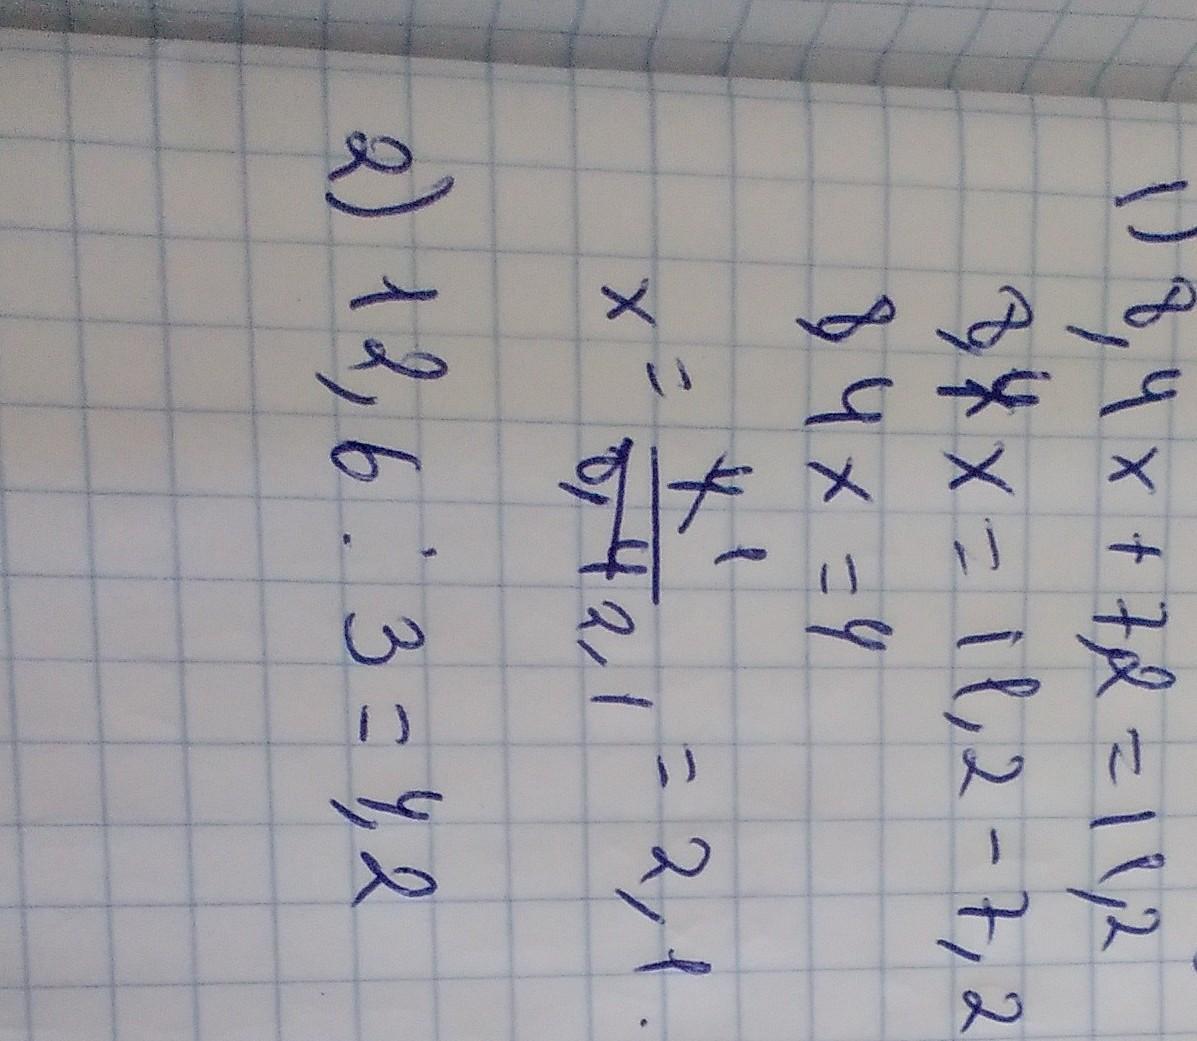 1) 8,4 x + 7,2 = 11,2
8,4 x = 11,2 - 7,2
8 4 x = 4
x = 4 1 / 8,4 2,1 = 2,1.
2) 12,6 : 3 = 4,2